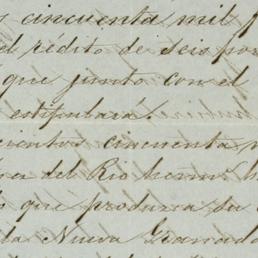 cincuenta mil
rédito de seis por
que junto con el
estipulara.
cientos cincuenta
del Rio hemos
que produzca su
la Nueva Granada